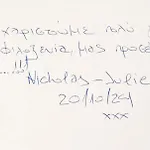 χαριστούμε πολύ
φιλοξενία μας προσέ
...!!!
Nicholas - Julie
20/10/24
xxx